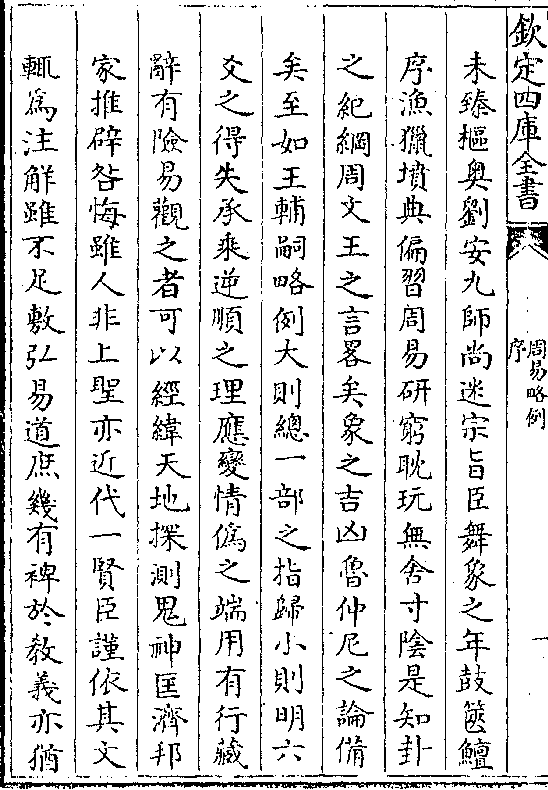 欽定四庫全書
周易略例
序
一
未臻樞奥劉安九師尚迷宗旨臣舞象之年鼓篋鱣
序漁獵墳典偏習周易研窮耽玩無舍寸陰是知卦
之紀綱周文王之言畧矣象之吉凶魯仲尼之論備
矣至如王輔嗣略例大則總一部之指歸小則明六
爻之得失承乘逆順之理應變情偽之端用有行藏
辭有險易觀之者可以經緯天地探測鬼神匡濟邦
家推辟咎悔雖人非上聖亦近代一賢臣謹依其文
輒為注解雖不足敷弘易道庶幾有裨於教義亦猶